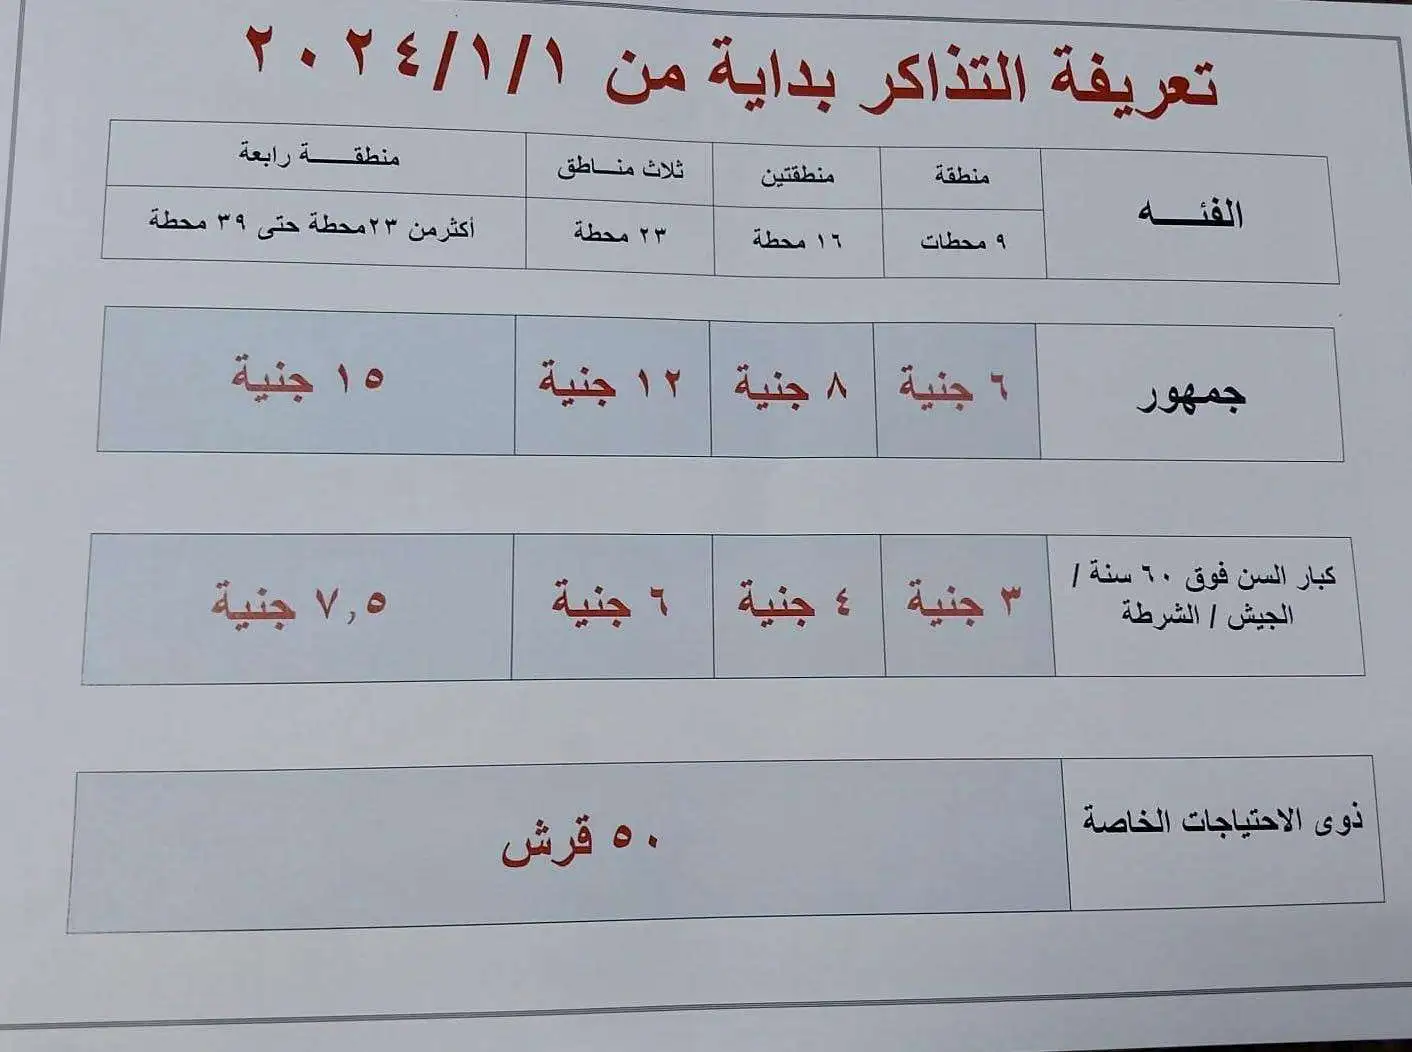 تعريفة التذاكر بداية من ٢٠٢٤/١/١
الفئـــه منطقة منطقتين ثلاث منـــاطق منطقـــــة رابعة
٩ محطات ١٦ محطة ٢٣ محطة أكثرمن ٢٣محطة حتى ٣٩ محطة
جمهور ٦ جنية ٨ جنية ١٢ جنية ١٥ جنية
كبار السن فوق ٦٠ سنة /
الجيش / الشرطة ٣ جنية ٤ جنية ٦ جنية ٧,٥ جنية
ذوى الاحتياجات الخاصة ٥٠ قرش